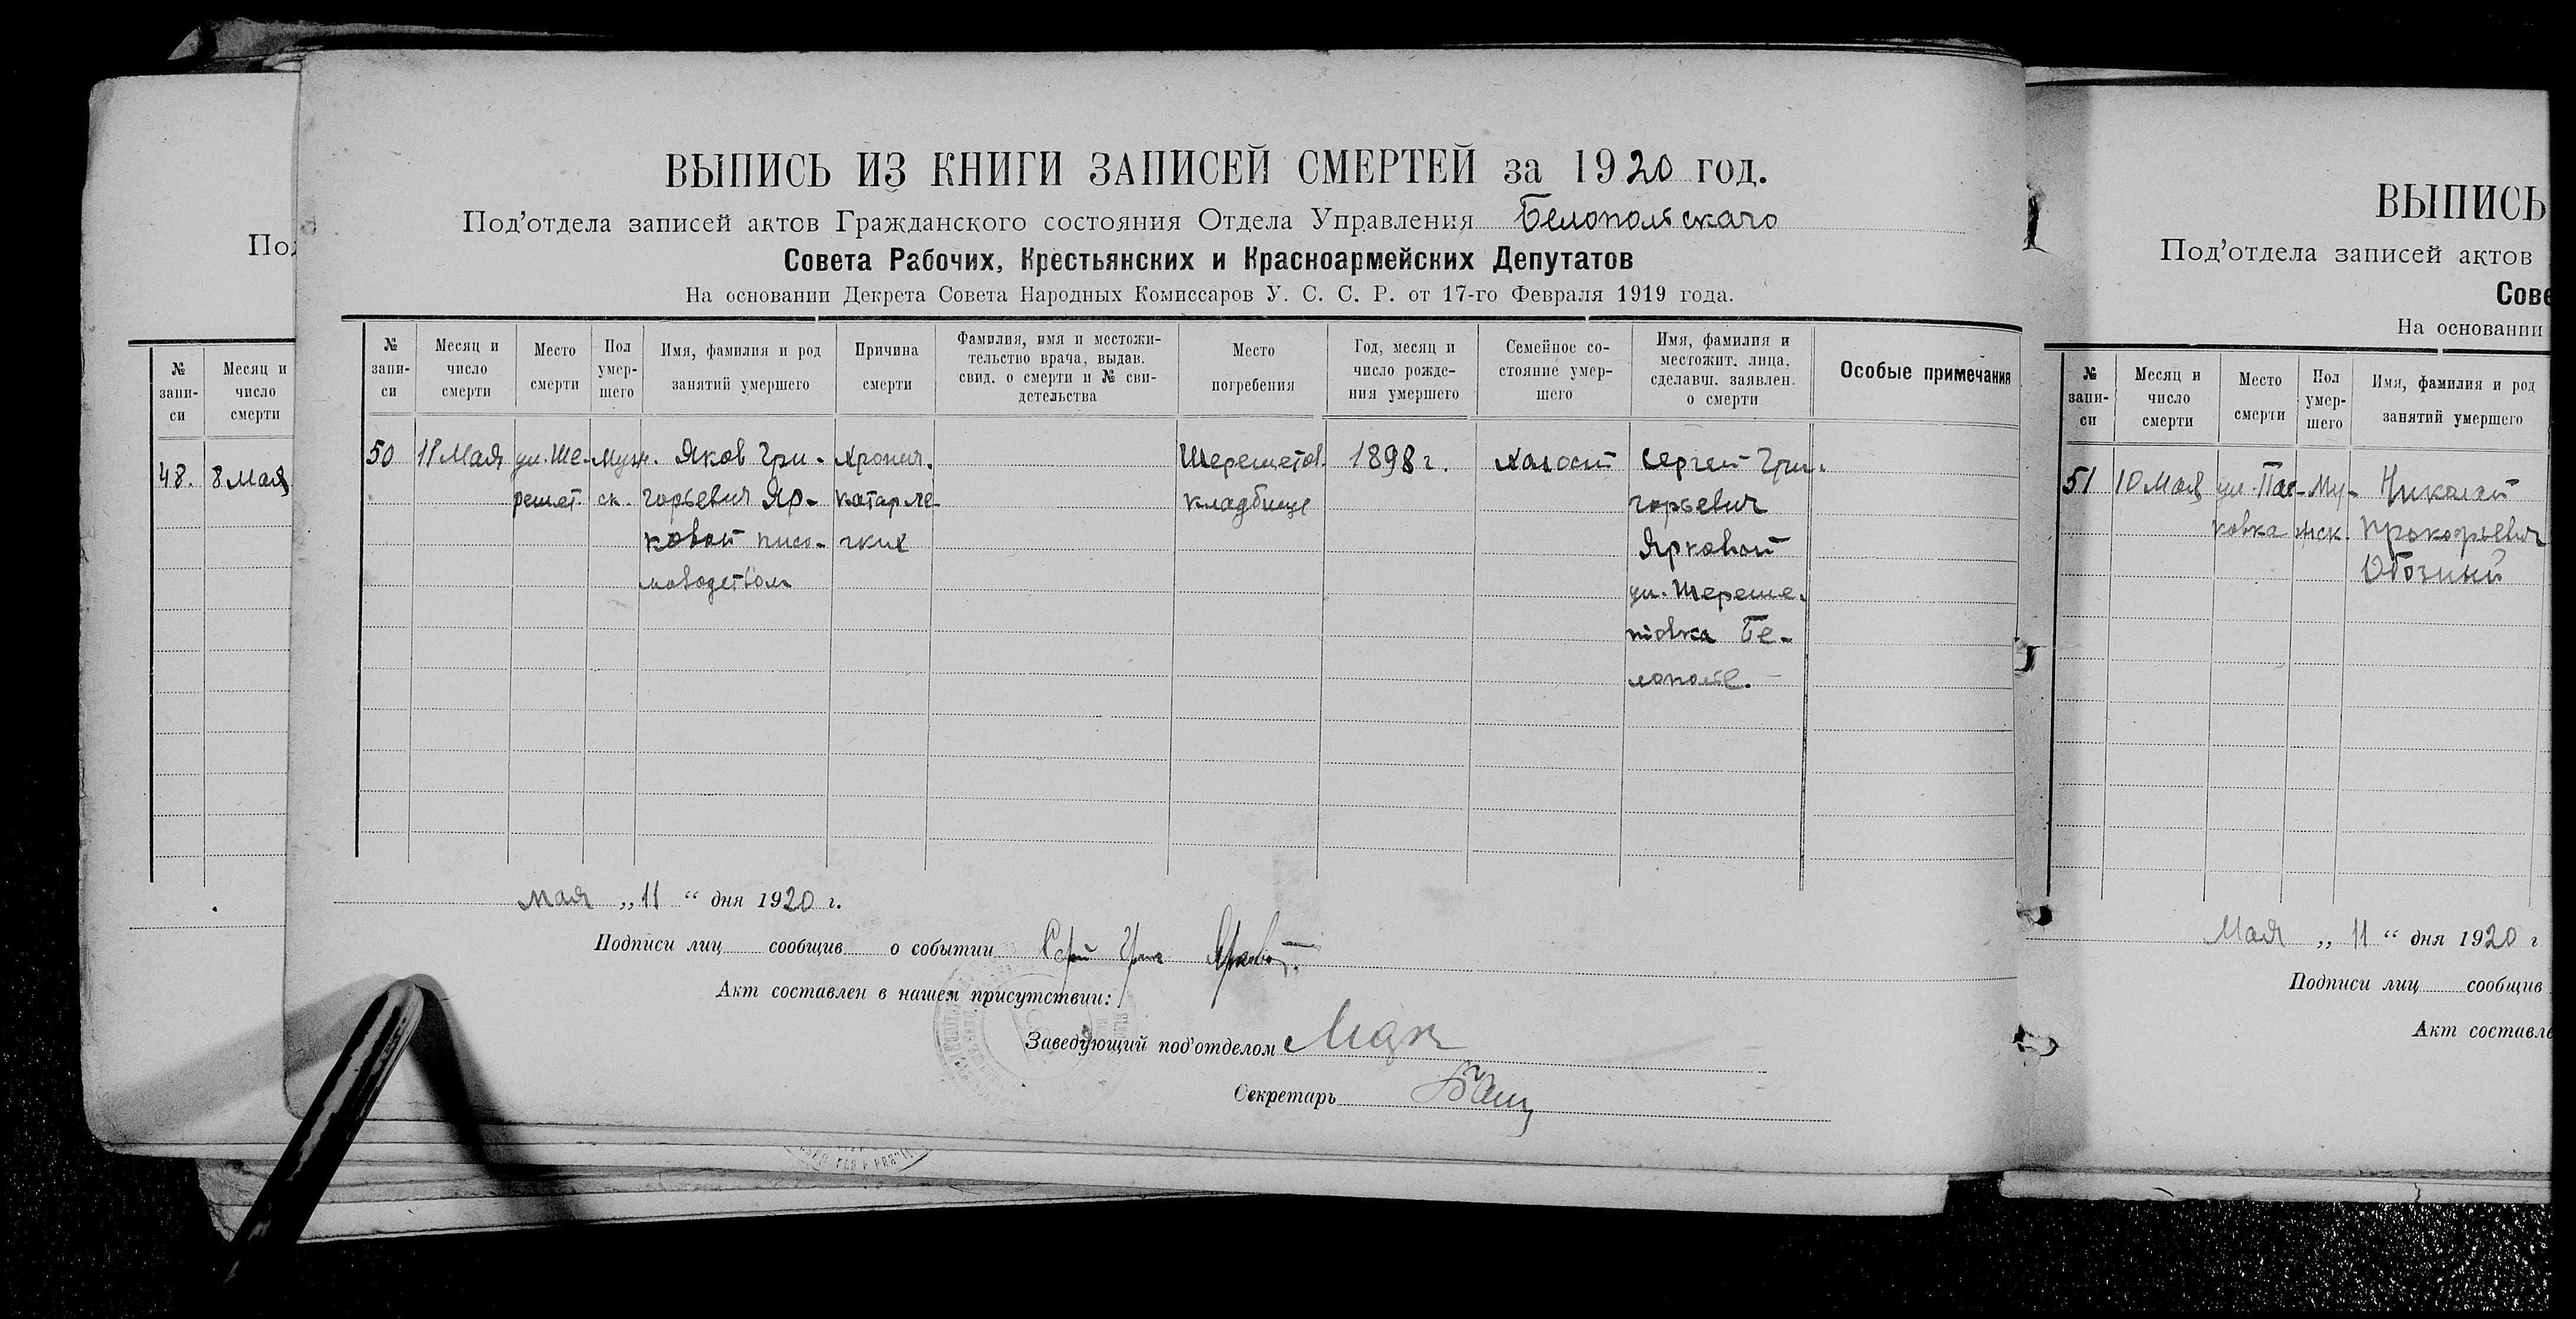 ВЫПИСЬ ИЗ КНИГИ ЗАПИСЕЙ СМЕРТЕЙ за 1920 год.
Под'отдела записей актов Гражданского состояния Отдела Управления Белопольскаго
Совета Рабочих, Крестьянских и Красноармейских Депутатов
На основании Декрета Совета Народных Комиссаров У. С. С. Р. от 17-го Февраля 1919 года.
№ запи- си
Месяц и число смерти
Место смерти
Пол умер- шего
Имя, фамилия и род занятий умершего
Причина смерти
Фамилия, имя и местожи- тельство врача, выдав. свид. о смерти и № сви- детельства
Место погребения
Год, месяц и число рожде- ния умершего
Семейное со- стояние умер- шего
Имя, фамилия и местожит. лица, сделавш. заявлен. о смерти
Особые примечания
50
11 Мая
ул. Ше-
решет.
Муж.
ск.
Яков Гри-
горьевич Яр-
ковой письмоводством
Хронич.
катар ле-
гких
Шереметов.
кладбище
1898 г.
Холост
Сергей Гри-
горьевич
Ярковой
ул. Шереме-
товка Бе-
лополье.
мая „ 11 “ дня 1920 г.
Подписи лиц сообщив о событии
Акт составлен в нашем присутствии:
Заведующий под'отделом
Секретарь
По
№ запи- си
Месяц и число смерти
48.
8 Мая
ВЫПИСЬ
Под'отдела записей актов
Сове
На основании
№ запи- си
Месяц и число смерти
Место смерти
Пол умер- шего
Имя, фамилия и род занятий умершего
51
10 Мая
ковка
Му-
жск.
Николай
Прокофьевич
Мая „ 11 “ дня 1920 г
Подписи лиц сообщив
Акт составле